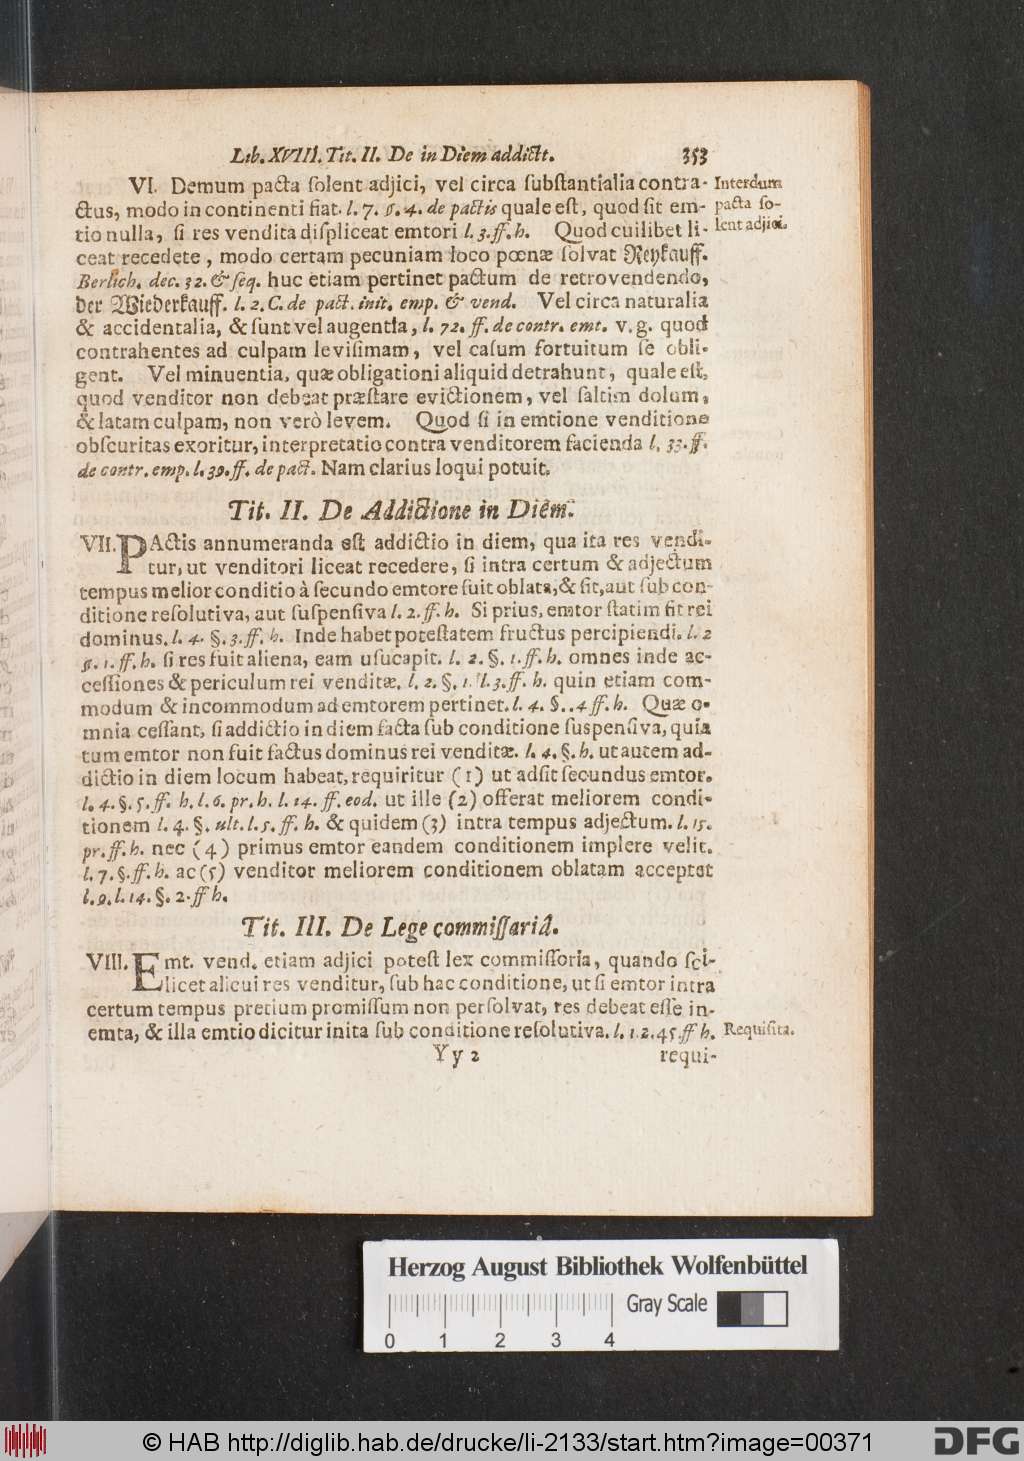 Lib. XVIII. Tit. II. De in Diem addict. 353
VI. Demum pacta ſolent adjici, vel circa ſubſtantialia contra- Interdum
ctus, modo in continenti fiat. l. 7. §. 4. de pactis quale eſt, quod ſit em- pacta ſo-
tio nulla, ſi res vendita diſpliceat emtori l. 3. ff. h. Quod cuilibet li- lent adjici.
ceat recedete, modo certam pecuniam loco pœnæ ſolvat Reykauff.
Berlich. dec. 32. & ſeq. huc etiam pertinet pactum de retrovendendo,
der Wiederkauff. l. 2. C. de pact. init. emp. & vend. Vel circa naturalia
& accidentalia, & ſunt vel augentia, l. 72. ff. de contr. emt. v. g. quod
contrahentes ad culpam leviſimam, vel caſum fortuitum ſe obli-
gent. Vel minuentia, quæ obligationi aliquid detrahunt, quale eſt,
quod venditor non debeat præſtare evictionem, vel ſaltim dolum,
& latam culpam, non verò levem. Quod ſi in emtione venditione
obſcuritas exoritur, interpretatio contra venditorem facienda l. 33. ff.
de contr. emp. l. 39. ff. de pact. Nam clarius loqui potuit.
Tit. II. De Addictione in Diem.
VII. PActis annumeranda eſt addictio in diem, qua ita res vendi-
tur, ut venditori liceat recedere, ſi intra certum & adjectum
tempus melior conditio à ſecundo emtore fuit oblata, & fit, aut ſub con-
ditione reſolutiva, aut ſuſpenſiva l. 2. ff. h. Si prius, emtor ſtatim fit rei
dominus. l. 4. §. 3. ff. h. Inde habet poteſtatem fructus percipiendi. l. 2
§. 1. ff. h. ſi res fuit aliena, eam uſucapit. l. 2. §. 1. ff. h. omnes inde ac-
ceſſiones & periculum rei venditæ. l. 2. §. 1. l. 3. ff. h. quin etiam com-
modum & incommodum ad emtorem pertinet. l. 4. §. . 4 ff. h. Quæ o-
mnia ceſſant, ſi addictio in diem facta ſub conditione ſuspenſiva, quia
tum emtor non fuit factus dominus rei venditæ. l. 4. §. h. ut autem ad-
dictio in diem locum habeat, requiritur (1) ut adſit ſecundus emtor.
l. 4. §. 5. ff. h. l. 6. pr. h. l. 14. ff. eod. ut ille (2) offerat meliorem condi-
tionem l. 4. §. ult. l. 5. ff. h. & quidem (3) intra tempus adjectum. l. 15.
pr. ff. h. nec (4) primus emtor eandem conditionem implere velit.
l. 7. §. ff. h. ac (5) venditor meliorem conditionem oblatam acceptet
l. 9. l. 14. §. 2. ff h.
Tit. III. De Lege commiſſariâ.
VIII. Emt. vend. etiam adjici poteſt lex commiſſoria, quando ſci-
licet alicui res venditur, ſub hac conditione, ut ſi emtor intra
certum tempus pretium promiſſum non perſolvat, res debeat eſſe in-
emta, & illa emtio dicitur inita ſub conditione reſolutiva. l. 1. 2. 45. ff h. Requiſita.
Yy 2 requi-
Herzog August Bibliothek Wolfenbüttel
Gray Scale
0 1 2 3 4
© HAB http://diglib.hab.de/drucke/li-2133/start.htm?image=00371
DFG